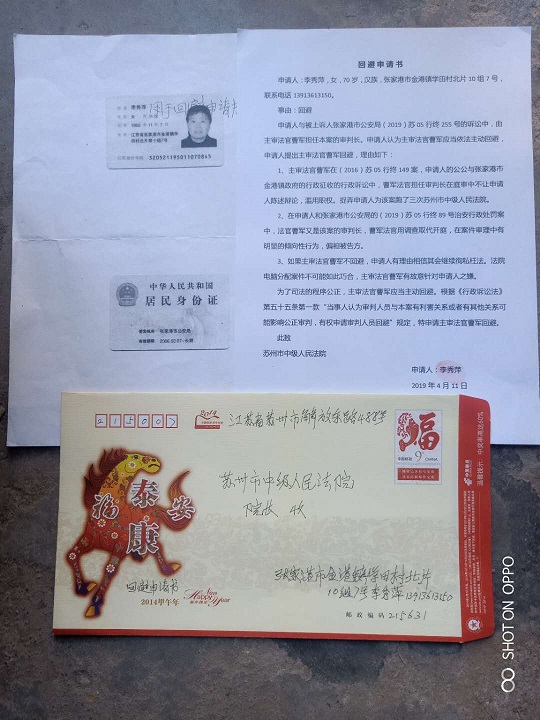 回避申请书
申请人：李秀萍，女，70岁，汉族，张家港市金港镇学田村北片10组7号，
联系电话 13913613150。
事由：回避
申请人与被上诉人张家港市公安局（2019）苏05行终255号的诉讼中，由
主审法官曹军担任本案的审判长。申请人认为主审法官曹军应当依法主动回避，
申请人提出主审法官曹军回避，理由如下：
1、主审法官曹军在（2016）苏05行终149案，申请人的公公与张家港
市金港镇政府的行政征收的行政诉讼中，曹军法官担任审判长在庭审中不让申请人
陈述辩论，滥用职权。捉弄申请人为该案跑了三次苏州市中级人民法院。
2、在申请人和张家港市公安局的（2019）苏05行终89号治安行政处罚案
中，法官曹军又是该案的审判长，曹军法官用调查取代开庭，在案件审理中有
明显的倾向性行为，偏袒被告方。
3、如果主审法官曹军不回避，申请人有理由相信其会继续徇私枉法。法院
电脑分配案件不可能如此巧合，主审法官曹军有故意针对申请人之嫌。
为了司法的程序公正，主审法官曹军应当主动回避。根据《行政诉讼法》
第五十五条第一款“当事人认为审判人员与本案有利害关系或者有其他关系可
能影响公正审判，有权申请审判人员回避”规定，特申请主审法官曹军回避。
此致
苏州市中级人民法院
申请人：李秀萍
2019 年 4 月 11 日
用于回避申请
320521195011070845
中华人民共和国
居民身份证
签发机关 张家港市公安局
215007
2014
江苏省苏州市解放东路488号
福
中国邮政 CHINA
苏州市中级人民法院
院长 收
张家港市金港镇学田村北片
10组7号李秀萍 13913613150
邮政编码 215631
福 泰 康 安
回避申请书
2014甲午年
Happy New Year
中国邮政
温馨提示
SHOT ON OPPO